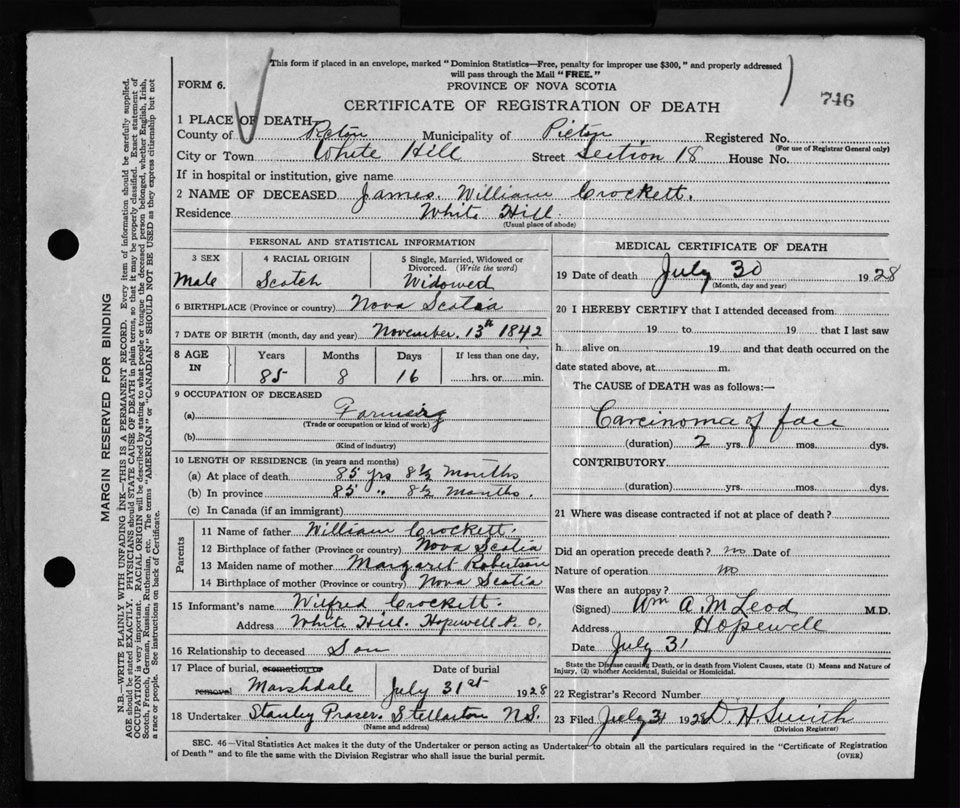 This form if placed in an envelope, marked "Dominion Statistics—Free, penalty for improper use $300," and properly addressed
will pass through the Mail "FREE."
FORM 6.
PROVINCE OF NOVA SCOTIA
746
CERTIFICATE OF REGISTRATION OF DEATH
1 PLACE OF DEATH
County of Pictou Municipality of Pictou Registered No.
(For use of Registrar General only)
City or Town White Hill Street Section 18 House No.
If in hospital or institution, give name
2 NAME OF DECEASED James. William Crockett.
Residence White Hill.
(Usual place of abode)
PERSONAL AND STATISTICAL INFORMATION
3 SEX 4 RACIAL ORIGIN 5 Single, Married, Widowed or Divorced. (Write the word)
Male Scotch Widowed
6 BIRTHPLACE (Province or country) Nova Scotia
7 DATE OF BIRTH (month, day and year) November. 13th 1842
8 AGE IN Years Months Days If less than one day,
85 8 16 hrs. or min.
9 OCCUPATION OF DECEASED
(a) Farming
(Trade or occupation or kind of work)
(b)
(Kind of industry)
10 LENGTH OF RESIDENCE (in years and months)
(a) At place of death 85 yrs 8½ months
(b) In province 85 " 8½ months.
(c) In Canada (if an immigrant)
Parents
11 Name of father William Crockett.
12 Birthplace of father (Province or country) Nova Scotia
13 Maiden name of mother Margaret Robertson
14 Birthplace of mother (Province or country) Nova Scotia
15 Informant's name Wilfred Crockett.
Address White Hill. Hopewell P. O.
16 Relationship to deceased Son
17 Place of burial, cremation or removal Date of burial
Marshdale July 31st 1928
18 Undertaker Stanley Fraser. Stellarton N.S.
(Name and address)
MEDICAL CERTIFICATE OF DEATH
19 Date of death July 30 1928
(Month, day and year)
20 I HEREBY CERTIFY that I attended deceased from
19 to 19 that I last saw
h alive on 19 and that death occurred on the
date stated above, at m.
The CAUSE of DEATH was as follows:—
Carcinoma of face
(duration) 2 yrs. mos. dys.
CONTRIBUTORY
(duration) yrs. mos. dys.
21 Where was disease contracted if not at place of death?
Did an operation precede death? no Date of
Nature of operation no
Was there an autopsy?
(Signed) Wm A. McLeod M.D.
Address Hopewell
Date July 31
State the Disease causing Death, or in death from Violent Causes, state (1) Means and Nature of
Injury, (2) whether Accidental, Suicidal or Homicidal.
22 Registrar's Record Number
23 Filed July 31 1928 D. H. Smith
(Division Registrar)
SEC. 46—Vital Statistics Act makes it the duty of the Undertaker or person acting as Undertaker to obtain all the particulars required in the "Certificate of Registration
of Death" and to file the same with the Division Registrar who shall issue the burial permit.
(OVER)
MARGIN RESERVED FOR BINDING
N.B.—WRITE PLAINLY WITH UNFADING INK—THIS IS A PERMANENT RECORD. Every item of information should be carefully supplied.
AGE should be stated EXACTLY. PHYSICIANS should STATE CAUSE OF DEATH in plain terms, so that it may be properly classified. Exact statement of
OCCUPATION is very important. RACIAL ORIGIN will be described by stating to what people or tongue the deceased person belonged, whether English, Irish,
Scotch, French, German, Russian, Ruthenian, etc. The terms "AMERICAN" or "CANADIAN" SHOULD NOT BE USED as they express citizenship but not
a race or people. See instructions on back of Certificate.